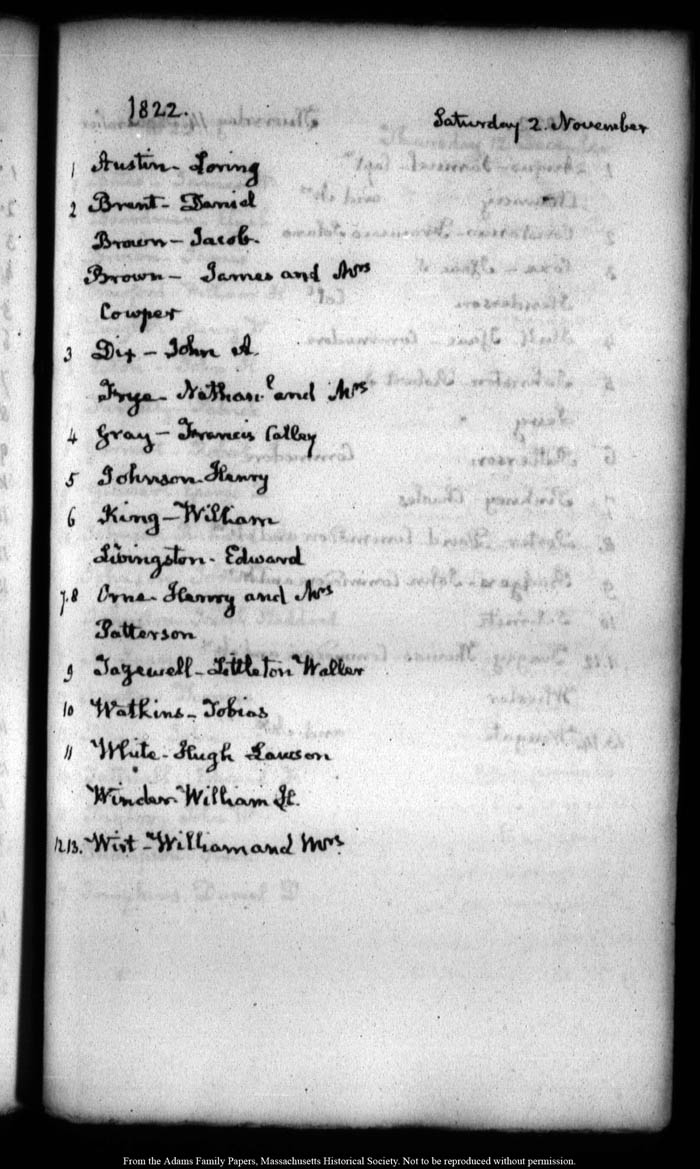 1822.
Saturday 2. November
1 Austin - Loring
2 Brent - Daniel
Brown - Jacob.
Brown - James and Mrs
Cowper
3 Dix - John A.
Frye - Nathanl and Mrs
4 Gray - Francis Calley
5 Johnson - Henry
6 King - William
Livingston - Edward
7.8 Orne - Henry and Mrs
Patterson
9 Tazewell - Littleton Waller
10 Watkins - Tobias
11 White - Hugh Lawson
Winder William H.
12.13. Wirt - William and Mrs
From the Adams Family Papers, Massachusetts Historical Society. Not to be reproduced without permission.